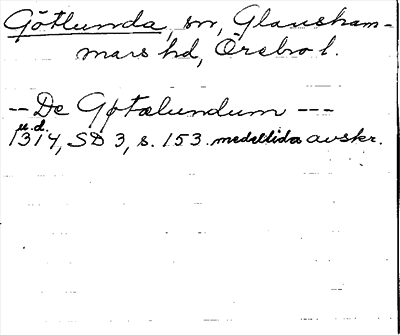 Götlunda, sn, Glansham-
mars hd, Örebro l.
-- De Gøtælundum ---
u.d.
1314, SD 3, s. 153. medeltida avskr.